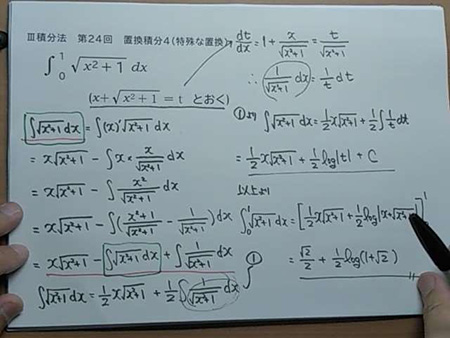 Ⅲ積分法 第24回 置換積分4(特殊な置換)
∫₀¹ √(x²+1) dx
(x+√(x²+1) = t とおく)
∫√(x²+1) dx = ∫(x)'√(x²+1) dx
= x√(x²+1) - ∫x × x/√(x²+1) dx
= x√(x²+1) - ∫ x²/√(x²+1) dx
= x√(x²+1) - ∫( (x²+1)/√(x²+1) - 1/√(x²+1) )dx
= x√(x²+1) - ∫√(x²+1) dx + ∫ 1/√(x²+1) dx
∫√(x²+1) dx = 1/2 x√(x²+1) + 1/2 ∫ 1/√(x²+1) dx
①
dt/dx = 1 + x/√(x²+1) = t/√(x²+1)
∴ 1/√(x²+1) dx = 1/t dt
①より ∫√(x²+1) dx = 1/2 x√(x²+1) + 1/2 ∫ 1/t dt
= 1/2 x√(x²+1) + 1/2 log|t| + C
以上より
∫₀¹ √(x²+1) dx = [1/2 x√(x²+1) + 1/2 log|x+√(x²+1)
]¹
= √2/2 + 1/2 log(1+√2)